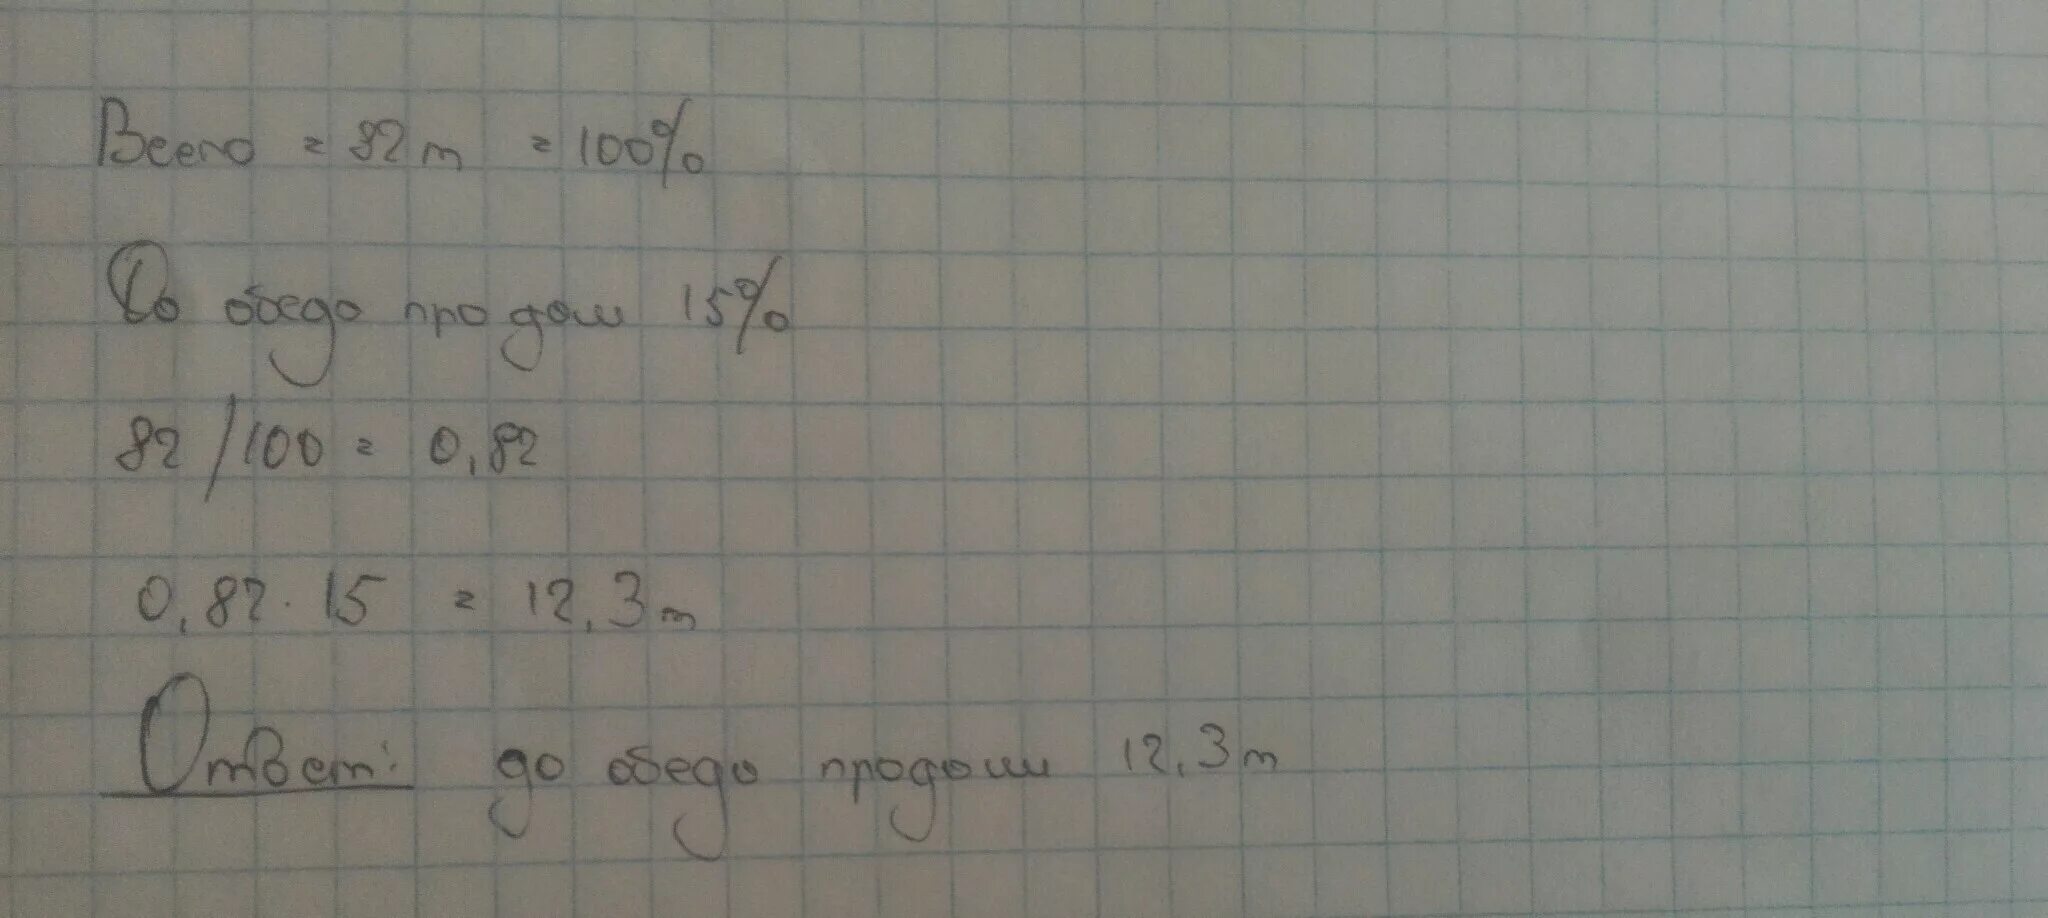 Всего = 82 т = 100%
До обеда продали 15%
82/100 = 0,82
0,82 · 15 = 12,3 т
Ответ: до обеда продали 12,3 т